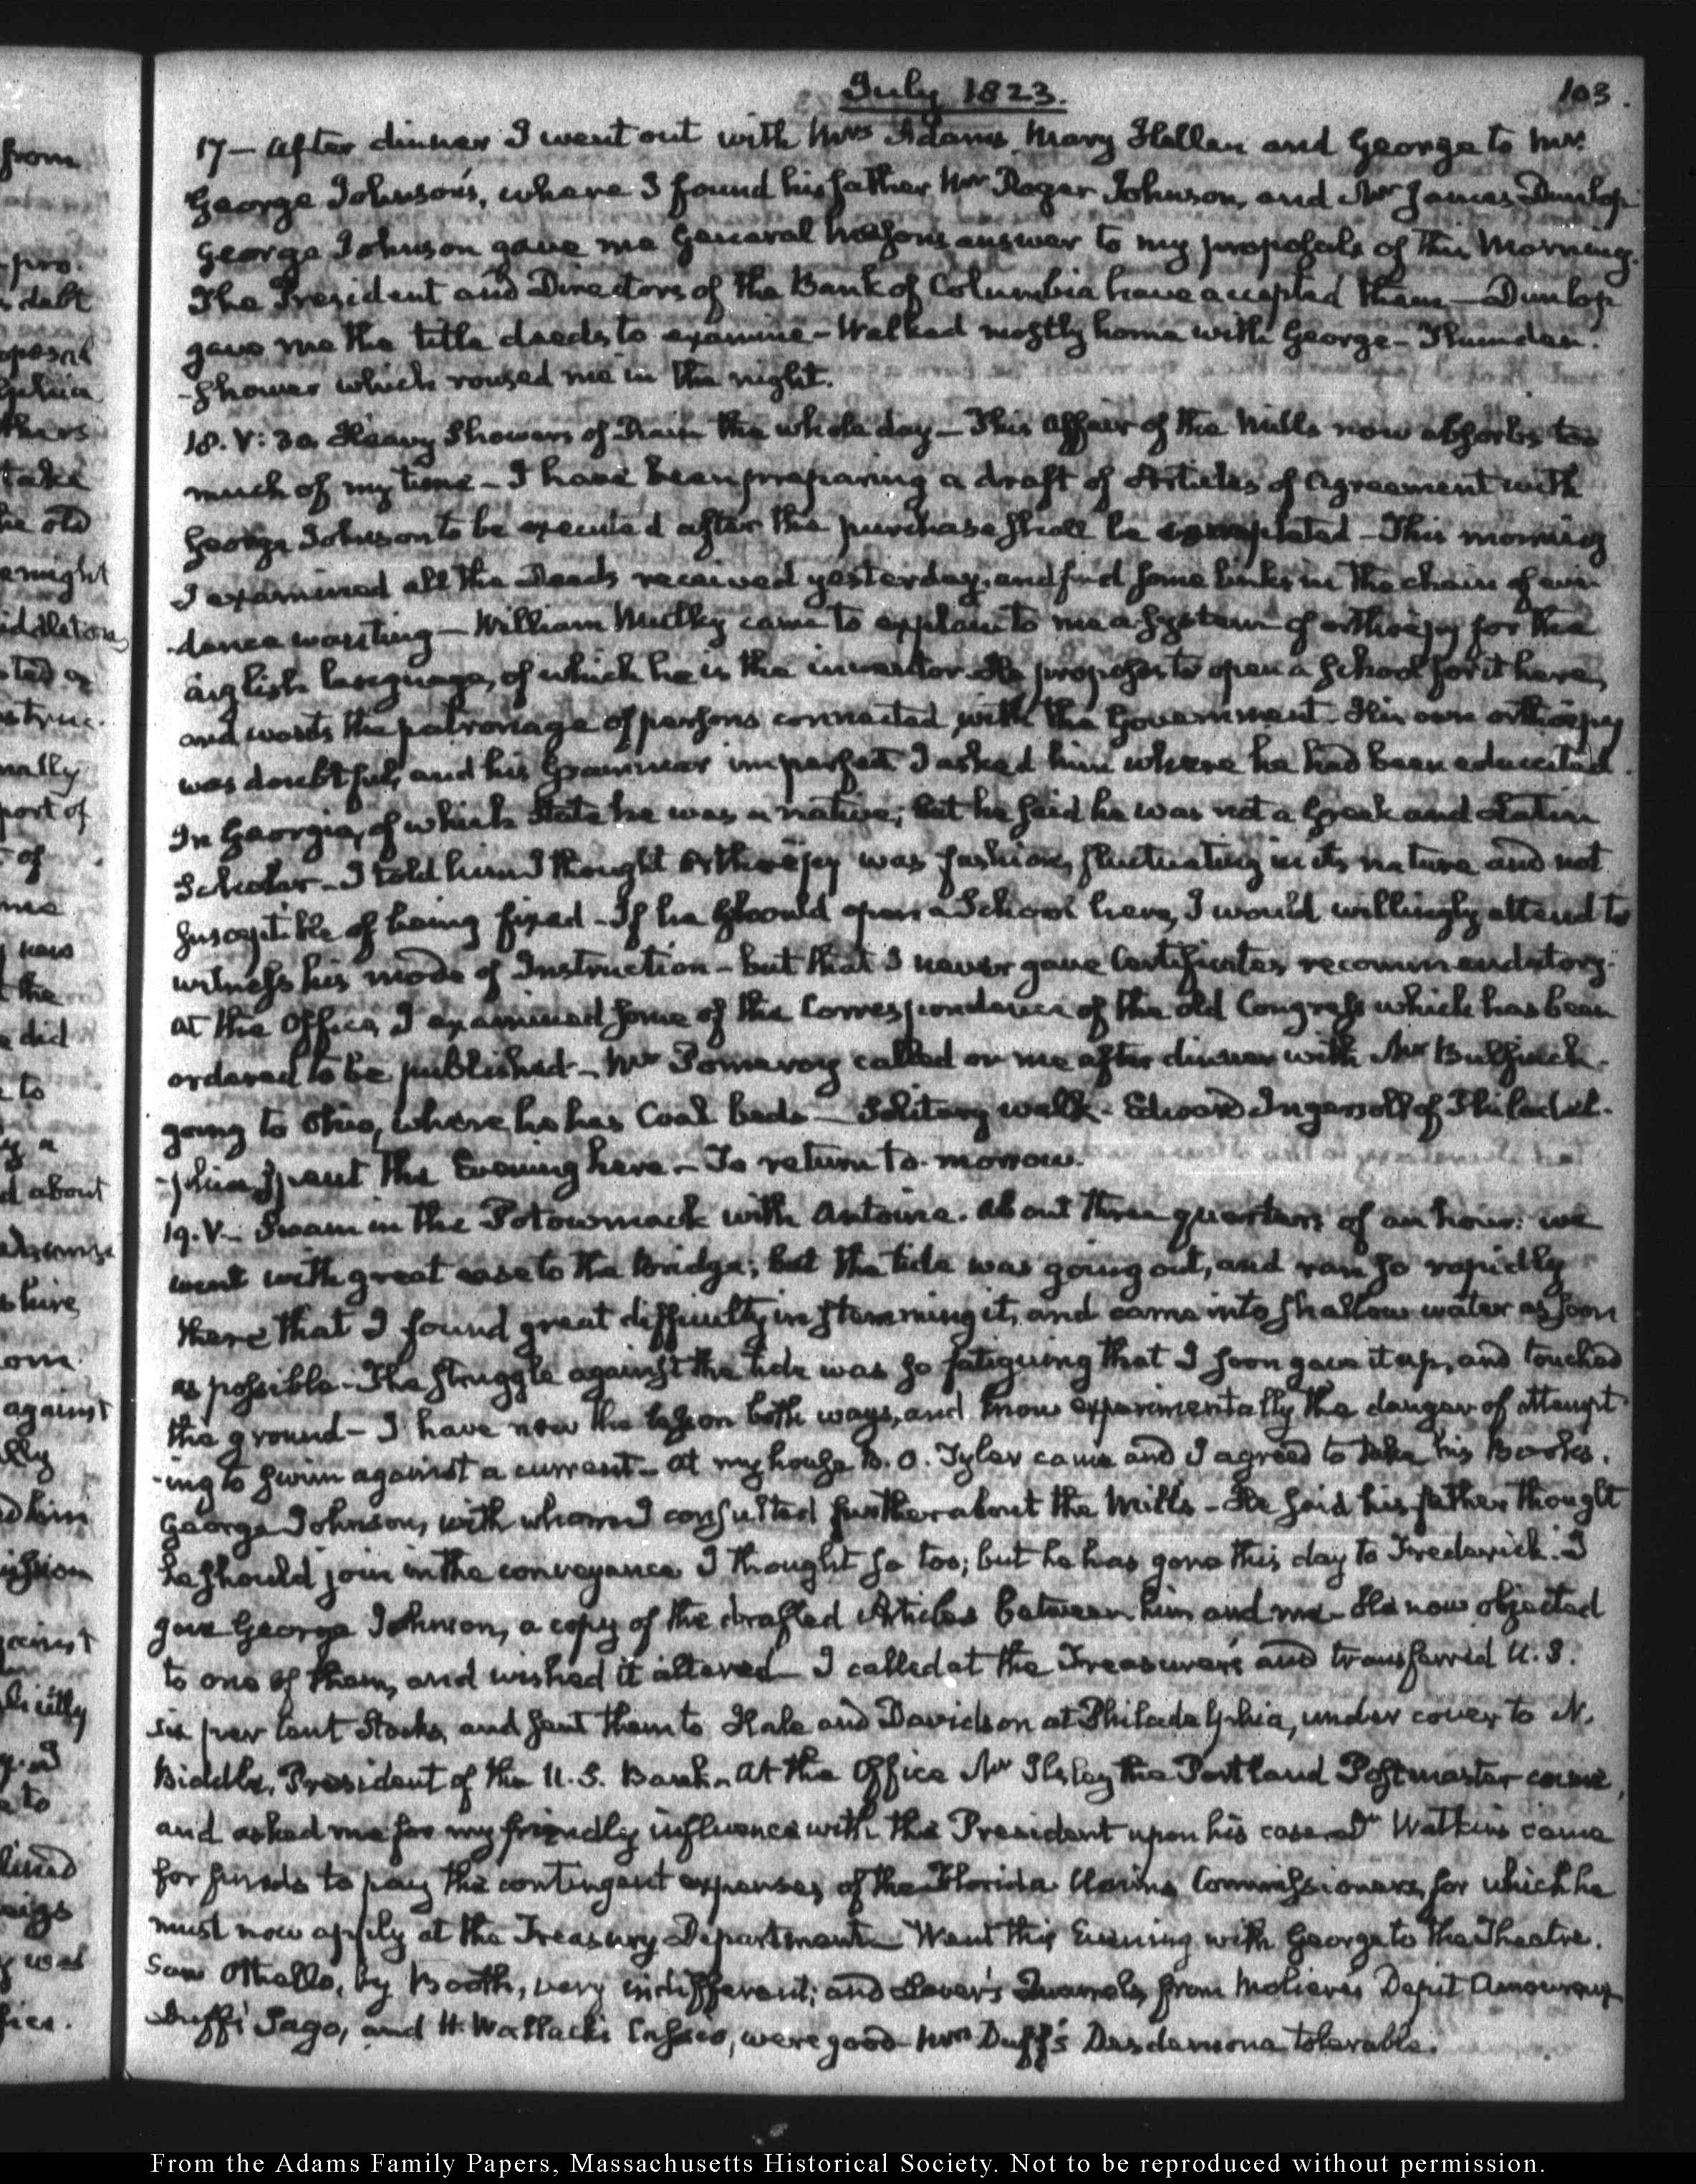 July 1823.
103.
17 — After dinner I went out with Mrs Adams, Mary Hellen and George to Mr
George Johnson's, where I found his father Mr Roger Johnson, and Mr James Dunlop
George Johnson gave me General Mason's answer to my proposals of this Morning.
The President and Directors of the Bank of Columbia have accepted them — Dunlop
gave me the title deeds to examine — Walked mostly home with George — Thunder
-shower which roused me in the night.
18. V: 30. Heavy Showers of Rain the whole day — This affair of the Mills now absorbs too
much of my time — I have been preparing a draft of Articles of Agreement with
George Johnson to be executed after the purchase shall be completed — This morning
I examined all the Deeds received yesterday, and find some links in the chain of evi-
-dence wanting — William Mulkey came to explain to me a system of orthoepy for the
english language, of which he is the inventor. He proposes to open a school for it here,
and wants the patronage of persons connected with the Government. His own orthoepy
was doubtful, and his Grammar imperfect. I asked him where he had been educated.
In Georgia, of which State he was a native; but he said he was not a Greek and Latin
Scholar — I told him I thought Orthoepy was fashion, fluctuating in its nature and not
susceptible of being fixed — If he should open a School here, I would willingly attend to
witness his mode of Instruction — but that I never gave Certificates recommendatory.
At the Office, I examined some of the Correspondence of the old Congress which has been
ordered to be published — Mr Pomeroy called on me after dinner with Mr Bulfinch.
going to Ohio, where he has Coal beds — Solitary walk — Edward Ingersoll of Philadel-
-phia, spent the Evening here — To return to-morrow.
19. V — Swam in the Potowmack with Antoine. About three quarters of an hour: we
went with great ease to the bridge; but the tide was going out, and ran so rapidly
there that I found great difficulty in stemming it, and came into shallow water as soon
as possible — The struggle against the tide was so fatiguing that I soon gave it up, and touched
the ground — I have now the lesson both ways, and know experimentally the danger of attempt-
-ing to swim against a current — At my house B. O. Tyler came and I agreed to take his Books.
George Johnson, with whom I consulted further about the Mills — He said his father thought
he should join in the conveyance. I thought so too; but he has gone this day to Frederick. I
gave George Johnson, a copy of the drafted Articles between him and me — He now objected
to one of them, and wished it altered — I called at the Treasurer's and transferred U.S.
six per Cent Stocks, and sent them to Hale and Davidson at Philadelphia, under cover to N.
Biddle, President of the U.S. Bank — At the Office Mr Ilsley the Portland Postmaster came,
and asked me for my friendly influence with the President upon his case. Dr Watkins came
for funds to pay the contingent expenses of the Florida Claims Commissioners, for which he
must now apply at the Treasury Department — Went this Evening with George to the Theatre.
Saw Othello, by Booth, very indifferent; and Lover's Quarrels, from Moliere's Depit Amoureux
Duff's Iago, and H. Wallack's Cassio, were good — Mrs Duff's Desdemona tolerable.
From the Adams Family Papers, Massachusetts Historical Society. Not to be reproduced without permission.